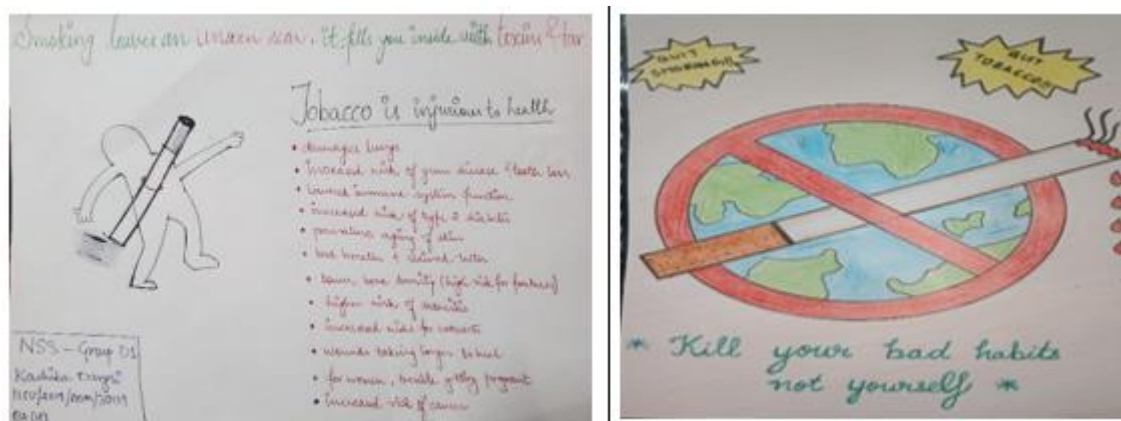 Smoking leaves an unseen scar, it fills you inside with toxin & tar
Tobacco is injurious to health
• damages lungs
• Increased risk of gum disease & teeth loss
• lowered immune system function
• increased risk of type 2 diabetes
• premature aging of skin
• bad breath &
• lower bone density (high risk for
• higher risk of
• increased risks for
• wounds taking longer to heal
• for women, trouble getting pregnant
• Increased risk of cancer
NSS - Group D1
Kashika
QUIT
SMOKING!!
QUIT
TOBACCO!!
* Kill your bad habits
not yourself *